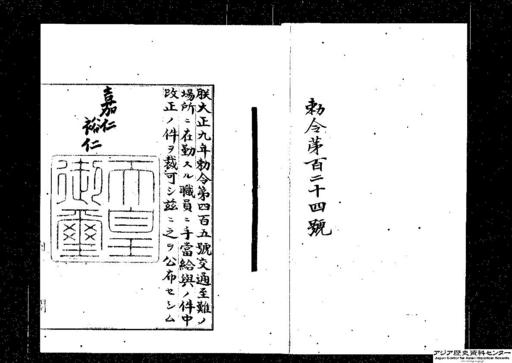 勅令第百二十四號
朕大正九年勅令第四百五號交通至難ノ
場所ニ在勤スル職員ニ手當給與ノ件中
改正ノ件ヲ裁可シ茲ニ之ヲ公布セシム
嘉仁
裕仁
天皇
御璽
アジア歴史資料センター
Japan Center for Asian Historical Records